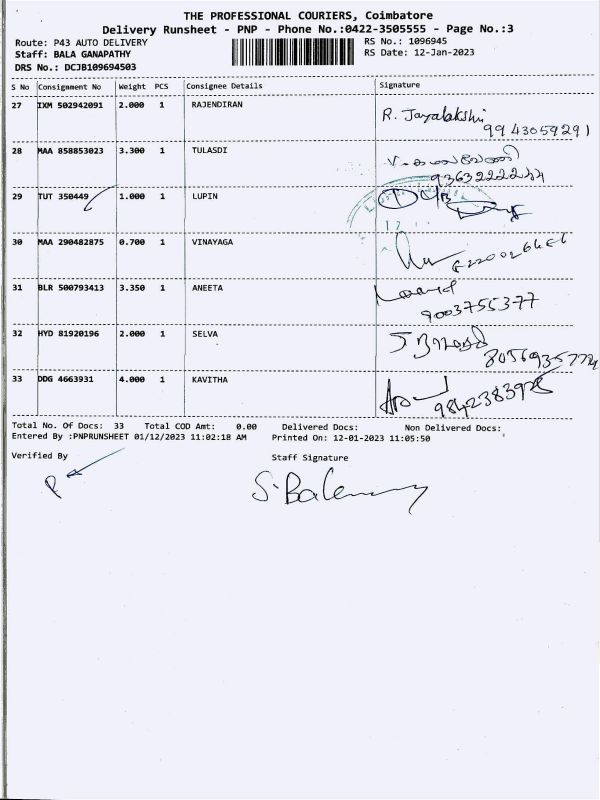 THE PROFESSIONAL COURIERS, Coimbatore
Delivery Runsheet - PNP - Phone No.:0422-3505555 - Page No.:3
Route: P43 AUTO DELIVERY RS No.: 1096945
Staff: BALA GANAPATHY RS Date: 12-Jan-2023
DRS No.: DCJB109694503
S No Consignment No Weight PCS Consignee Details Signature
27 IXM 502942091 2.000 1 RAJENDIRAN R. Jayalakshi
9943059291
28 MAA 858853023 3.300 1 TULASDI
9363222244
29 TUT 350449 1.000 1 LUPIN
30 MAA 290482875 0.700 1 VINAYAGA
31 BLR 500793413 3.350 1 ANEETA
9003755377
32 HYD 81920196 2.000 1 SELVA
33 DDG 4663931 4.000 1 KAVITHA
Total No. Of Docs: 33 Total COD Amt: 0.00 Delivered Docs: Non Delivered Docs:
Entered By :PNPRUNSHEET 01/12/2023 11:02:18 AM Printed On: 12-01-2023 11:05:50
Verified By Staff Signature